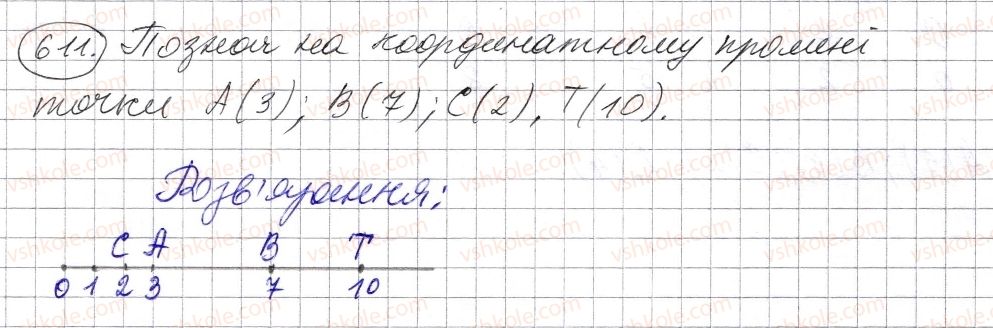 611. Познач на координатному промені
точки A(3); B(7); C(2), T(10).
Розв'язання:
C A B T
0 1 2 3 7 10
vshkole.com